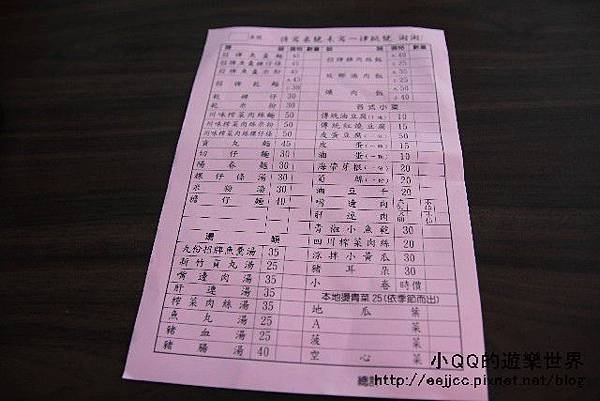 桌號 請寫桌號未寫一律跳號 謝謝
麵 類 價格 數量
招牌魚羹麵 45
招牌魚羹粿仔條 45
招牌魚羹米粉 45
招牌乾麵 大40 小30
乾粿仔 30
乾米粉 30
川味榨菜肉絲麵 50
川味榨菜肉絲米粉 50
川味榨菜肉絲粿仔條 50
貢丸麵 45
切仔麵 30
陽春麵 30
粿仔條湯 30
米粉湯 30
擔仔麵 40
湯 類
九份招牌魚羹湯 35
新竹貢丸湯 25
嘴邊肉湯 35
肝連湯 35
榨菜肉絲湯 35
魚丸湯 25
豬血湯 25
豬腸湯 40
飯 類 價格 數量
招牌雞肉絲飯 大40 小25
滷肉飯
燻肉飯
各式小菜
傳統油豆腐 10
傳統紅燒豆腐 15
皮蛋豆腐 30
皮蛋 15
滷蛋 10
海帶芽 20
筍絲 20
滷豆干 20
嘴邊肉
肝連肉
青椒小魚乾 30
四川榨菜肉絲 20
涼拌小黃瓜 30
豬耳朵 30
小卷 時價
本地燙青菜 25(依季節而出)
地瓜葉
A菜
菠菜
空心菜
小QQ的遊樂世界
http://eejjcc.pixnet.net/blog